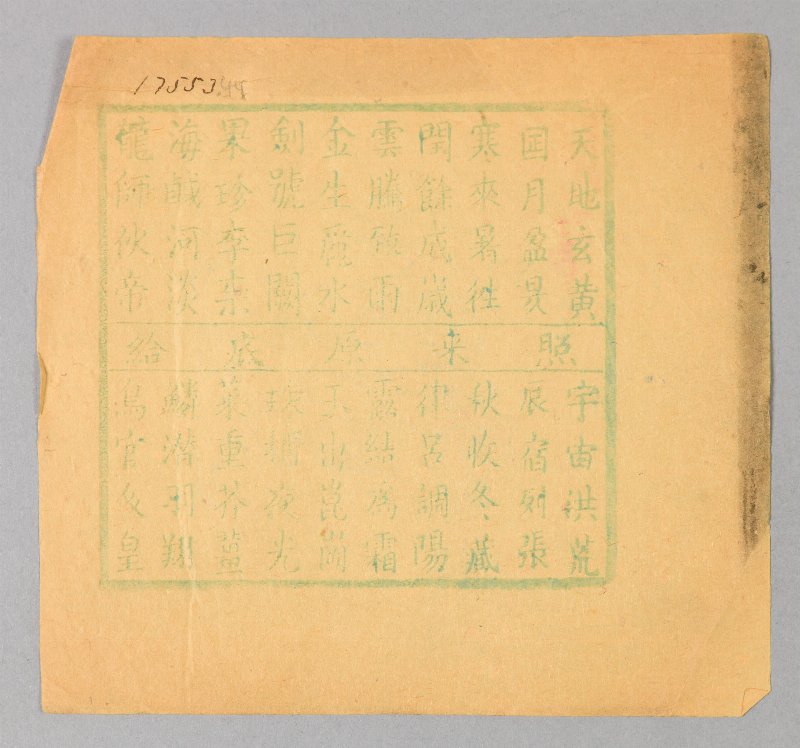 17553
天地玄黃
囸月盈昃
寒來暑往
閏餘成歲
雲騰致雨
金生麗水
劍號巨闕
果珍李柰
海鹹河淡
龍師伙帝
照来原底給
宇宙洪荒
辰宿列張
秋收冬藏
律呂調陽
露結為霜
玉出崑崗
珠稱夜光
菜重芥薑
鱗潛羽翔
鳥官人皇